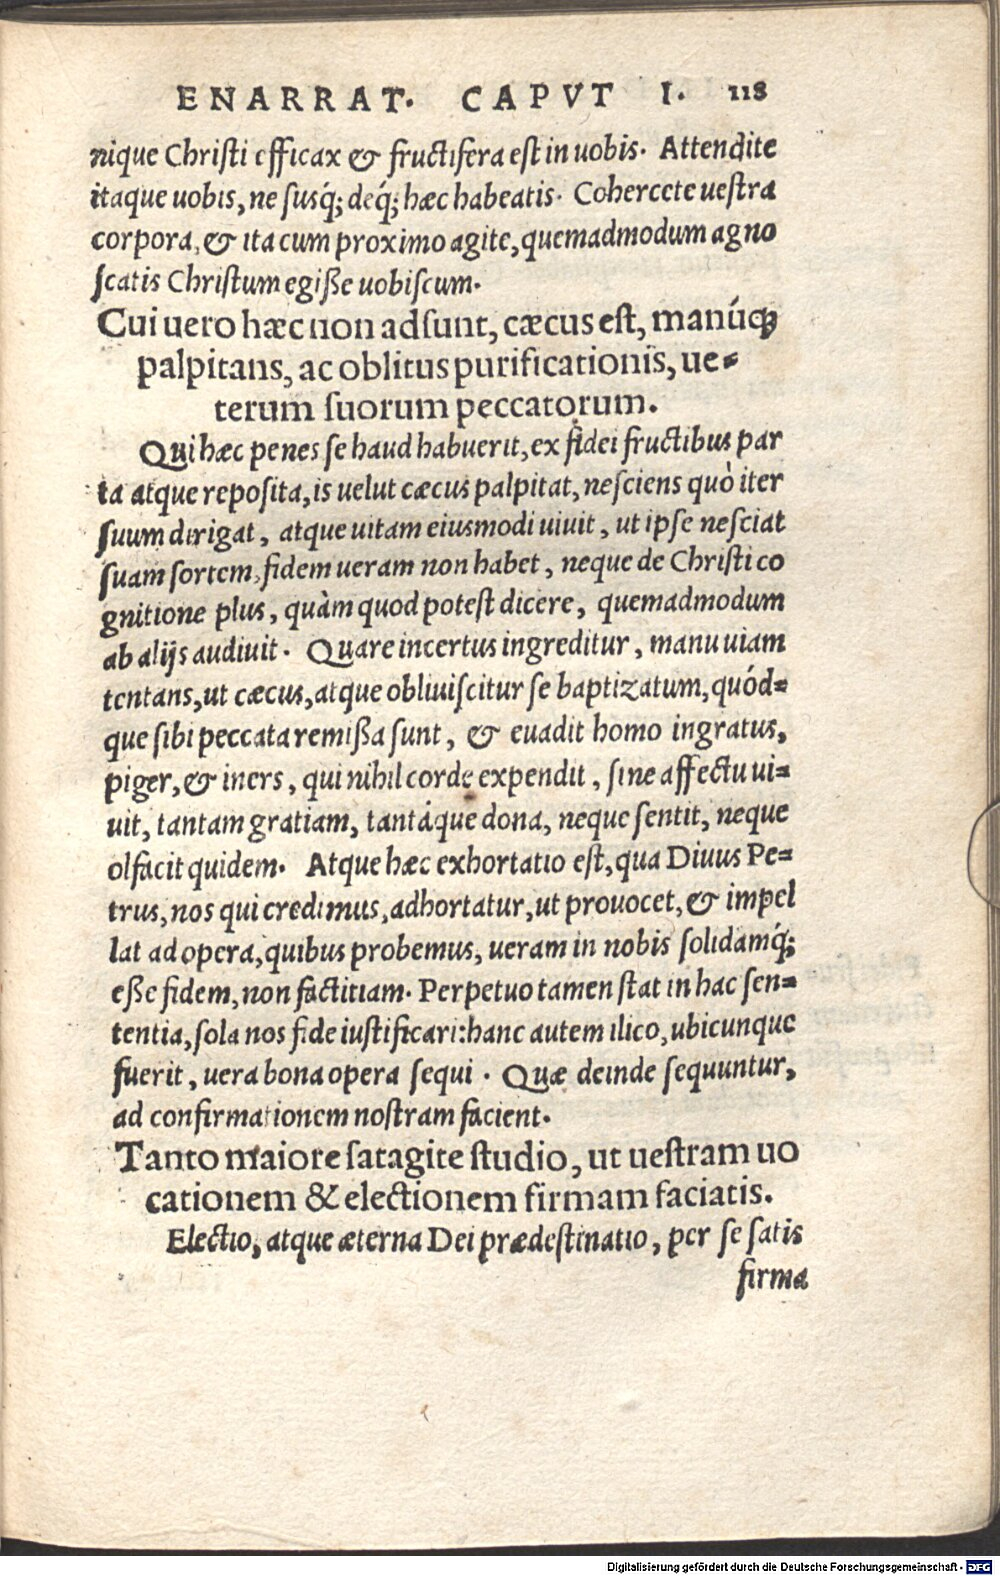 ENARRAT. CAPVT I. 118
nique Christi efficax & fructifera est in uobis. Attendite
itaque uobis, ne susq́; deq́; hæc habeatis. Cohercete uestra
corpora, & ita cum proximo agite, quemadmodum agno
scatis Christum egiße uobiscum.
Cui uero hæc non adsunt, cæcus est, manúq;
palpitans, ac oblitus purificationis, ue-
terum suorum peccatorum.
Qui hæc penes se haud habuerit, ex fidei fructibus par
ta atque reposita, is uelut cæcus palpitat, nesciens quò iter
suum dirigat, atque uitam eiusmodi uiuit, ut ipse nesciat
suam sortem, fidem ueram non habet, neque de Christi co
gnitione plus, quàm quod potest dicere, quemadmodum
ab alijs audiuit. Quare incertus ingreditur, manu uiam
tentans, ut cæcus, atque obliuiscitur se baptizatum, quód-
que sibi peccata remißa sunt, & euadit homo ingratus,
piger, & iners, qui nihil corde expendit, sine affectu ui-
uit, tantam gratiam, tantáque dona, neque sentit, neque
olfacit quidem. Atque hæc exhortatio est, qua Diuus Pe-
trus, nos qui credimus, adhortatur, ut prouocet, & impel
lat ad opera, quibus probemus, ueram in nobis solidamq́;
eße fidem, non factitiam. Perpetuo tamen stat in hac sen-
tentia, sola nos fide iustificari: hanc autem ilico, ubicunque
fuerit, uera bona opera sequi. Quæ deinde sequuntur,
ad confirmationem nostram facient.
Tanto maiore satagite studio, ut uestram uo
cationem & electionem firmam faciatis.
Electio, atque æterna Dei prædestinatio, per se satis
firma
Digitalisierung gefördert durch die Deutsche Forschungsgemeinschaft - DFG